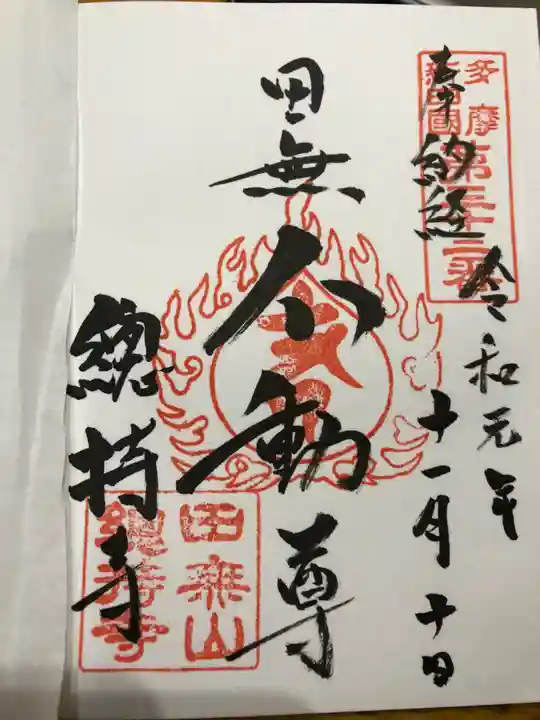 多摩
新四國
第三十三番
奉納経
令和元年
十一月十日
田無
不動尊
總持寺
田無山
總持寺